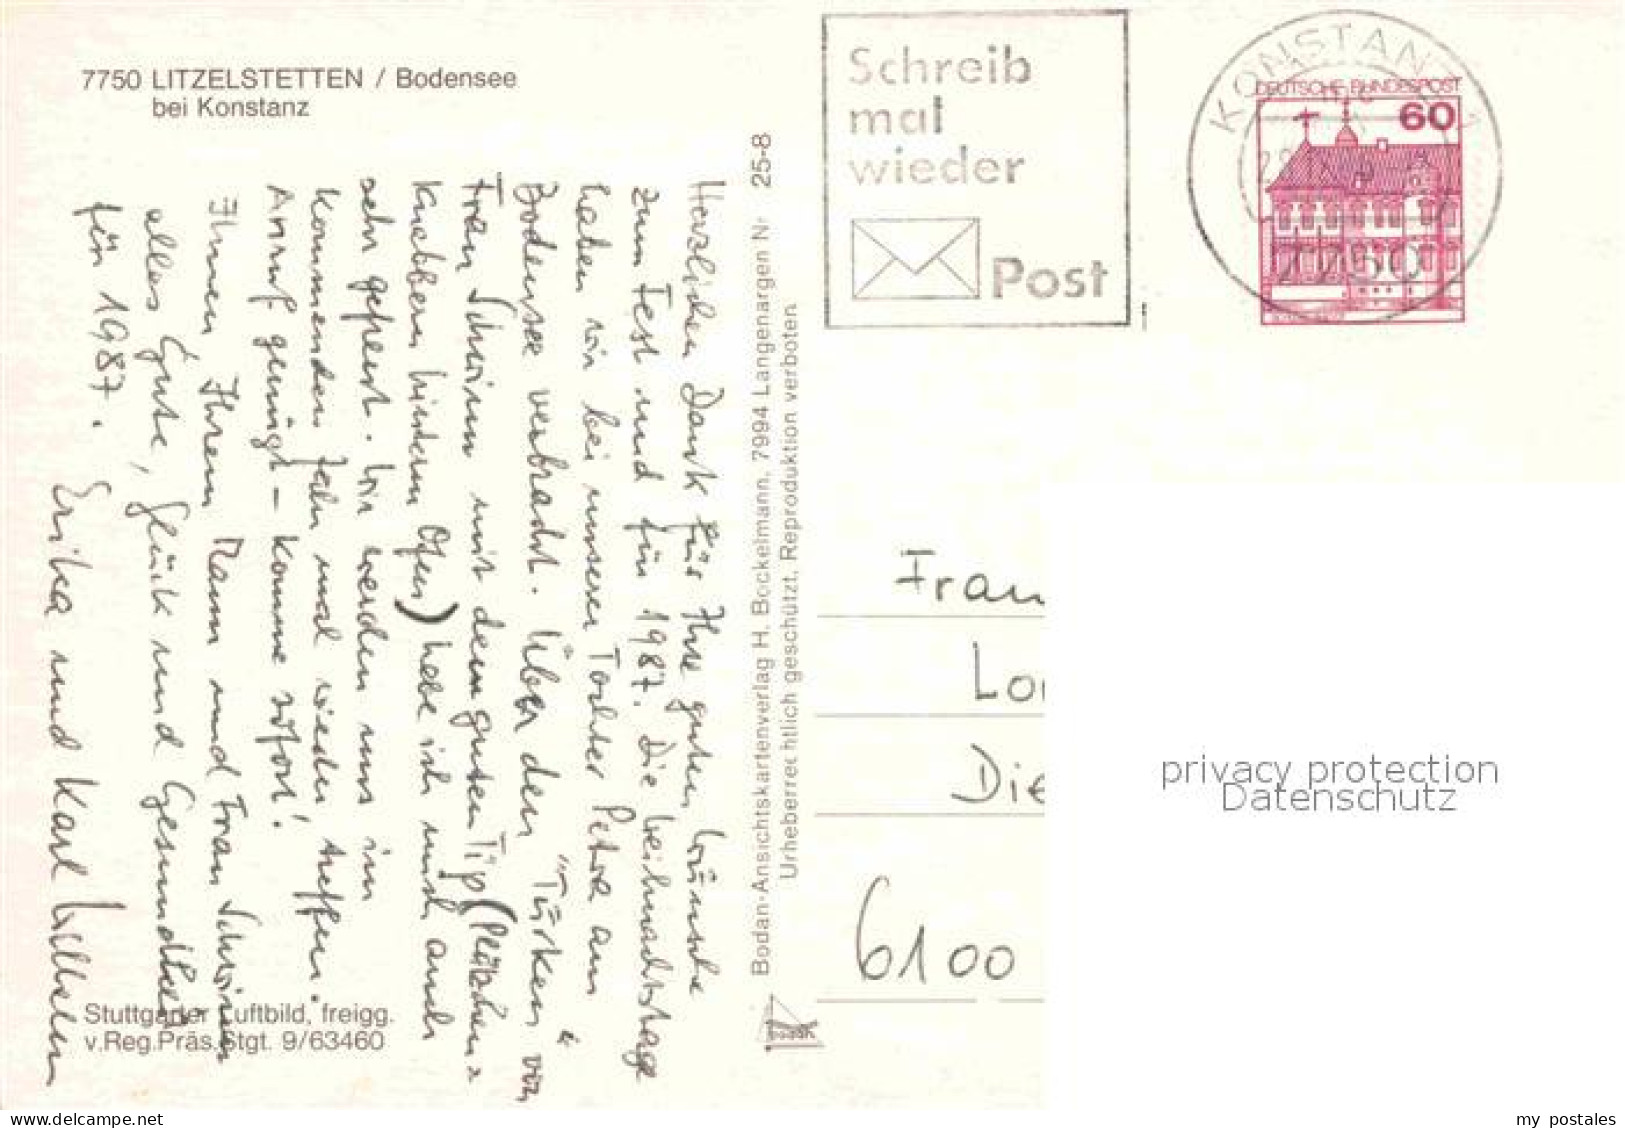 7750 LITZELSTETTEN / Bodensee
bei Konstanz
Herzlichen Dank für Ihre guten Wünsche
zum Fest und für 1987. Die Weihnachtstage
haben wir bei unserer Tochter Petra am
Bodensee verbracht. Über den "Türken" von
Frau Schwinn mit dem guten Tip (Plätzchen z
Knabbern hinterm Ofen) habe ich mich auch
sehr gefreut. Wir werden uns im
kommenden Jahr mal wieder treffen.
Anruf genügt - komme sofort!
Ihnen Ihrem Mann und Frau Schwinn
alles Gute, Glück und Gesundheit
für 1987.
Erika und Karl Wilhelm
Stuttgarter Luftbild, freigg.
v.Reg.Präs.Stgt. 9/63460
Bodan-Ansichtskartenverlag H. Bockelmann, 7994 Langenargen Nr 25-8
Urheberrechtlich geschützt, Reproduktion verboten
Schreib
mal
wieder
Post
KONSTANZ 1
7750
DEUTSCHE BUNDESPOST
60
Frau
Lo
Die
6100
privacy protection
Datenschutz
delcampe.net
my postales